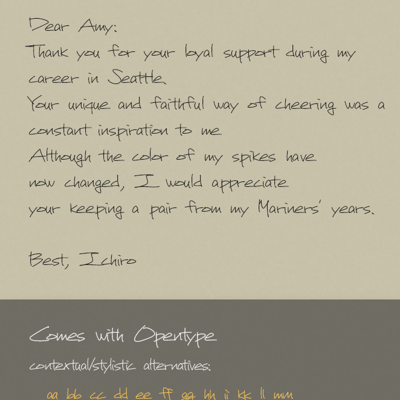 Dear Amy:
Thank you for your loyal support during my
career in Seattle.
Your unique and faithful way of cheering was a
constant inspiration to me.
Although the color of my spikes have
now changed, I would appreciate
your keeping a pair from my Mariners' years.
Best, Ichiro
Comes with Opentype
contextual/stylistic alternatives:
aa bb cc dd ee ff gg hh ii kk ll mm